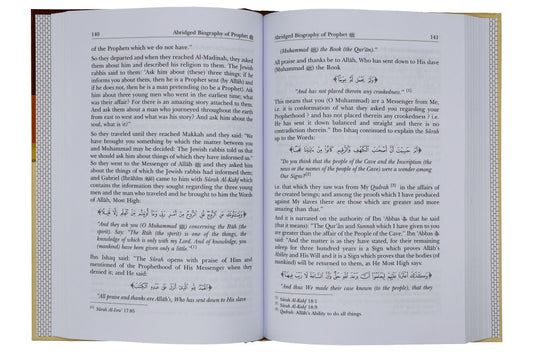 140 Abridged Biography of Prophet ﷺ
of the Prophets which we do not have."
So they departed and when they reached Al-Madinah, they asked
about him and they described his religion to them. The Jewish
rabbis said to them: 'Ask him about (these) three things; if he
informs you about them, then he is a Prophet sent (by Allâh) and
if he does not, then he is a man pretending (to be a Prophet). Ask
him about three young men who went in the earliest time; what
was their affair? For there is an amazing story attached to them.
And ask them about a man who journeyed throughout the earth
from east to west and what was his story? And ask him about the
soul, what is it?"
So they traveled until they reached Makkah and they said: "We
have brought you something by which the matter between you
and Muhammad may be decided: The Jewish rabbis told us that
we should ask him about things of which they have informed us."
So they went to the Messenger of Allâh ﷺ and they asked him
about the things of which the Jewish rabbis had informed them;
and Gabriel (Ibrâhîm) came to him with Sûrah Al-Kahf which
contains the information they sought regarding the three young
men and the man who traveled and he brought to him the Words
of Allâh, Most High:
﴿وَيَسْأَلُونَكَ عَنِ الرُّوحِ قُلِ الرُّوحُ مِنْ أَمْرِ رَبِّي وَمَا أُوتِيتُمْ مِنَ الْعِلْمِ إِلَّا قَلِيلًا﴾
"And they ask you (O Muhammad ﷺ) concerning the Rûh (the
spirit). Say: "The Rûh (the spirit) is one of the things, the
knowledge of which is only with my Lord. And of knowledge, you
(mankind) have been given only a little."(1)
Ibn Ishaq said: "The Sûrah opens with praise of Him and
mentioned of the Prophethood of His Messenger when they
denied it; and He said:
﴿الْحَمْدُ لِلَّهِ الَّذِي أَنْزَلَ عَلَى عَبْدِهِ الْكِتَابَ﴾
"All praise and thanks are Allâh's, Who has sent down to His slave
(1) Sûrah Al-Isra' 17:85
Abridged Biography of Prophet ﷺ 141
(Muhammad ﷺ) the Book (the Qur'ân)."
All praise and thanks be to Allâh, Who has sent down to His slave
(Muhammad ﷺ) the Book
﴿وَلَمْ يَجْعَلْ لَهُ عِوَجًا﴾
"And has not placed therein any crookedness." (1)
This means that you (O Muhammad) are a Messenger from Me,
i.e. it is conformation of what they asked you regarding your
Prophethood ? and has not placed therein any crookedness ? i.e.
He has sent it down balanced and straight and there is no
contradiction therein." Ibn Ishaq continued to explain the Sûrah
up to the Words:
﴿أَمْ حَسِبْتَ أَنَّ أَصْحَابَ الْكَهْفِ وَالرَّقِيمِ كَانُوا مِنْ آيَاتِنَا عَجَبًا﴾
"Do you think that the people of the Cave and the Inscription (the
news or the names of the people of the Cave) were a wonder among
Our Signs?(2)
i.e. that which they saw was from My Qudrah (3) in the affairs of
the created beings; and among the proofs which I have produced
against My slaves there are those which are greater and more
amazing than that."
And it is narrated on the authority of Ibn 'Abbas that he said
(that it means): "The Qur'ân and Sunnah which I have given to you
are greater than the affair of the People of the Cave." Ibn 'Abbas
said: "And the matter is as they have stated, for their remaining
asleep for three hundred years is a Sign which proves Allâh's
Ability and His Will and it is a Sign which proves that the bodies (of
mankind) will be returned to them, as He Most High says:
﴿وَكَذَلِكَ أَعْثَرْنَا عَلَيْهِمْ لِيَعْلَمُوا أَنَّ وَعْدَ اللَّهِ حَقٌّ وَأَنَّ السَّاعَةَ لَا رَيْبَ فِيهَا﴾
"And thus We made their case known (to the people), that they
(1) Sûrah Al-Kahf 18:1
(2) Sûrah Al-Kahf 18:9
(3) Qudrah: Allâh's Ability to do all things.